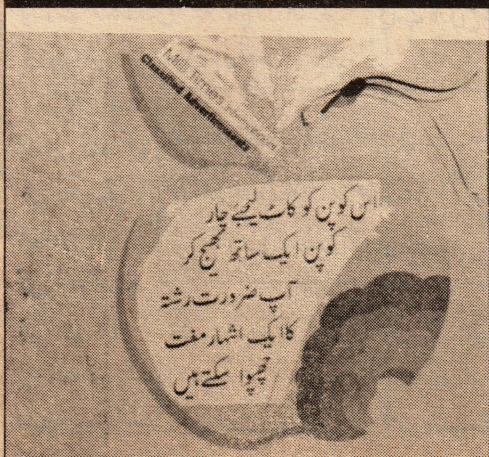 Milli Times International
Classified Advertisements
اس کوپن کو کاٹ لیجئے چار
کوپن ایک ساتھ بھیج کر
آپ ضرورت رشتہ
کا ایک اشہار مفت
چھپوا سکتے ہیں